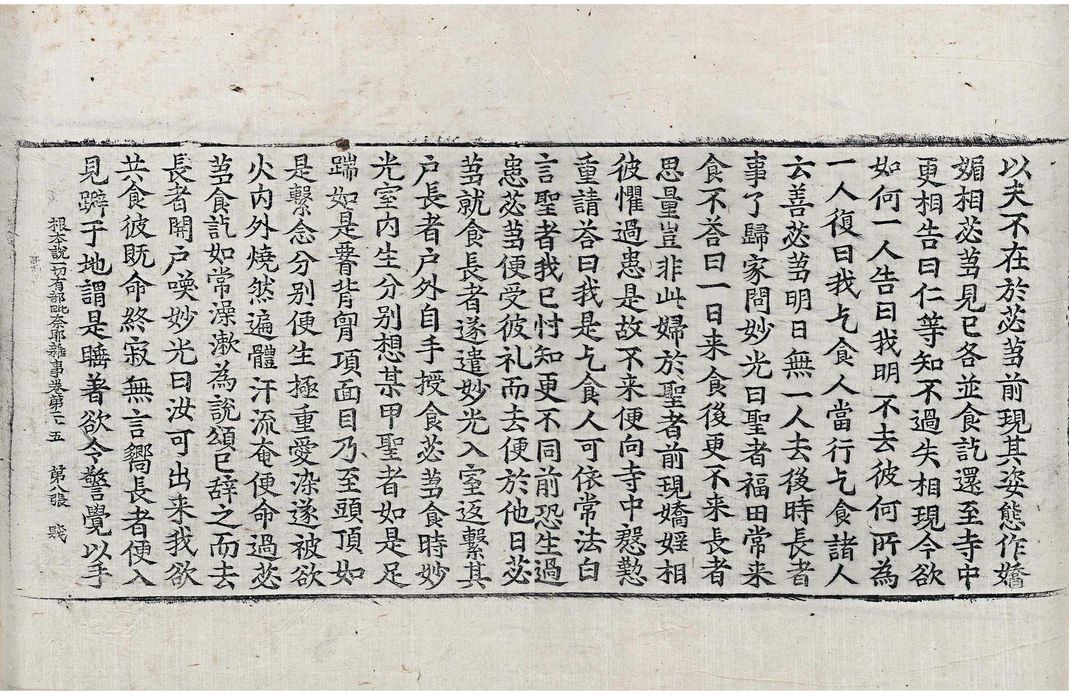 以夫不在於苾芻前現其姿態作嬌
媚相苾芻見已各並食訖還至寺中
更相告曰仁等知不過失相現今欲
如何一人告曰我明不去彼何所為
一人復曰我乞食人當行乞食諸人
云善苾芻明日無一人去後時長者
事了歸家問妙光曰聖者福田常来
食不荅曰一日来食後更不来長者
思量豈非此婦於聖者前現嬌婬相
彼懼過患是故不来便向寺中慇懃
重請荅曰我是乞食人可依常法白
言聖者我已忖知更不同前恐生過
患苾芻便受彼礼而去便於他日苾
芻就食長者遂遣妙光入室返繫其
户長者户外自手授食苾芻食時妙
光室内生分別想某甲聖者如是足
踹如是䏶背胷項面目乃至頭頂如
是繫念分別便生極重愛染遂被欲
火内外燒然遍體汗流奄便命過苾
芻食訖如常澡漱為說頌已辞之而去
長者開户喚妙光曰汝可出来我欲
共食彼既命終寂無言嚮長者便入
見躃于地謂是睡著欲令警覺以手
根本說一切有部毗奈耶雜事卷第二十五 第八張